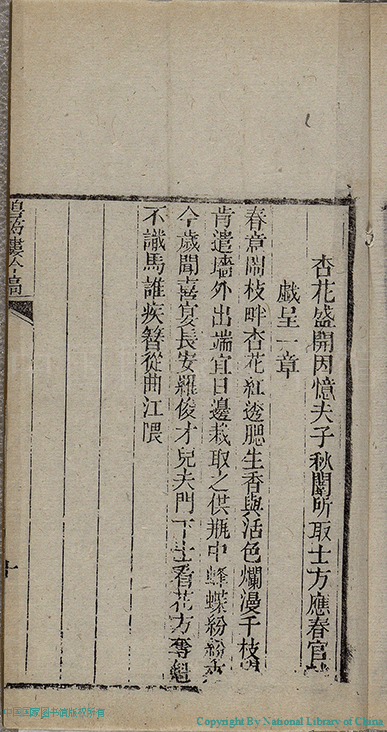 杏花盛開因憶夫子秋闈所取士方應春官
戲呈一章
春意鬧枝畔杏花紅透腮生香與活色爛漫千枝
肯遣墻外出端宜日邊栽取之供瓶中蜂蝶粉紛
今歲聞喜宴長安羅俊才兒夫門下士看花方奪
不識馬誰疾簪從曲江隈
十
中国国家图书馆版权所有
Copyright By National Library of China